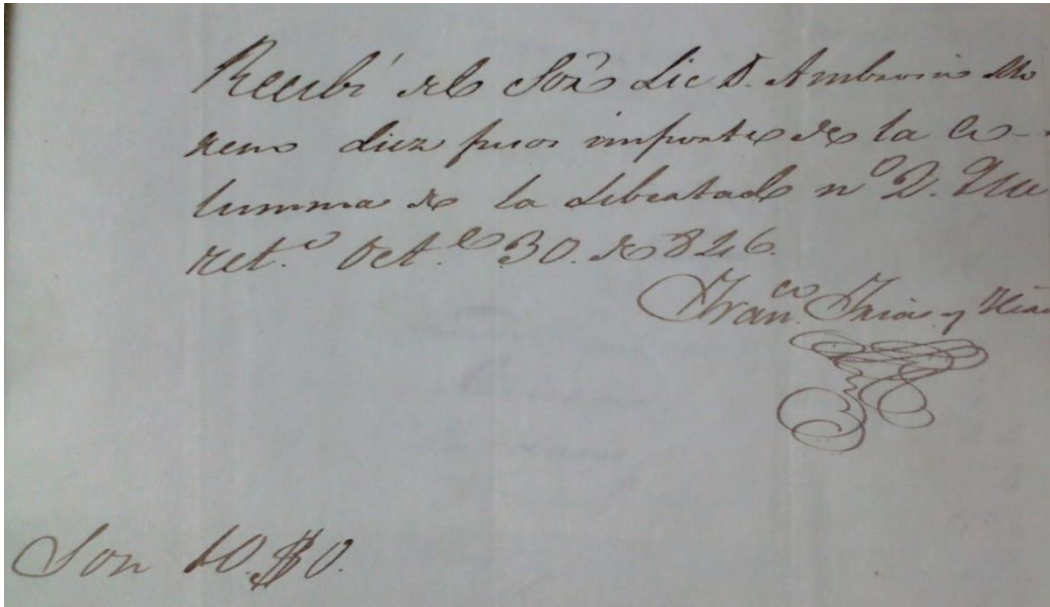 Recibí del Sõr Lic D. Ambrosio Mo
reno diez pesos importe de la Co-
lumna de la Libertad n.º 2. Que
ret.º Oct.e 30. de 826.
Fran.co Frias y
Son 10.$0.